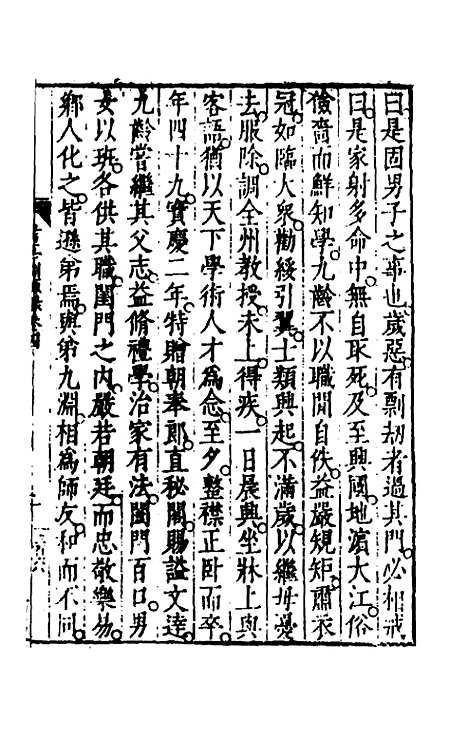 曰是固男子之事也歲惡有剽劫者過其門必相戒
曰是家射多命中無自取死及至興國地濱大江俗
儉嗇而鮮知學九齡不以職閒自佚益嚴規矩肅衣
冠如臨大衆勸綏引翼士類興起不滿歲以繼母憂
去服除調全州教授未上得疾一日晨興坐牀上與
客語猶以天下學術人才爲念至夕整襟正卧而卒
年四十九寶慶二年特贈朝奉郎直秘閣賜謚文達
九齡嘗繼其父志益脩禮學治家有法闔門百口男
女以班各供其職閨門之内嚴若朝廷而忠敬樂易
鄉人化之皆遜弟焉與弟九淵相爲師友和而不同